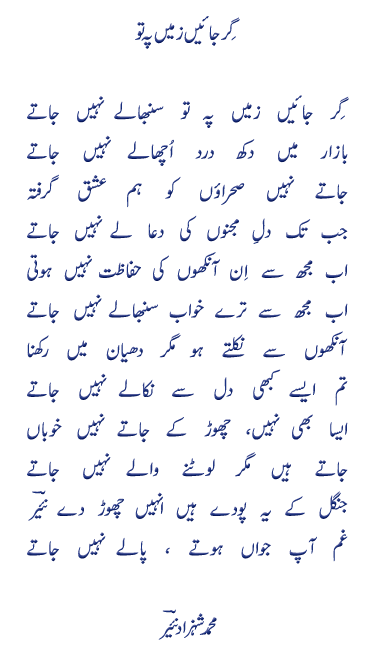 گِر جائیں زمیں پہ تو
گِر جائیں زمیں پہ تو سنبھالے نہیں جاتے
بازار میں دکھ درد اُچھالے نہیں جاتے
جاتے نہیں صحراؤں کو ہم عشق گرفتہ
جب تک دلِ مجنوں کی دعا لے نہیں جاتے
اب مجھ سے اِن آنکھوں کی حفاظت نہیں ہوتی
اب مجھ سے ترے خواب سنبھالے نہیں جاتے
آنکھوں سے نکلتے ہو مگر دھیان میں رکھنا
تم ایسے کبھی دل سے نکالے نہیں جاتے
ایسا بھی نہیں، چھوڑ کے جاتے نہیں خوباں
جاتے ہیں مگر لوٹنے والے نہیں جاتے
جنگل کے یہ پودے ہیں انہیں چھوڑ دے نیّرؔ
غم آپ جواں ہوتے ، پالے نہیں جاتے
محمد شہزاد نیّرؔ